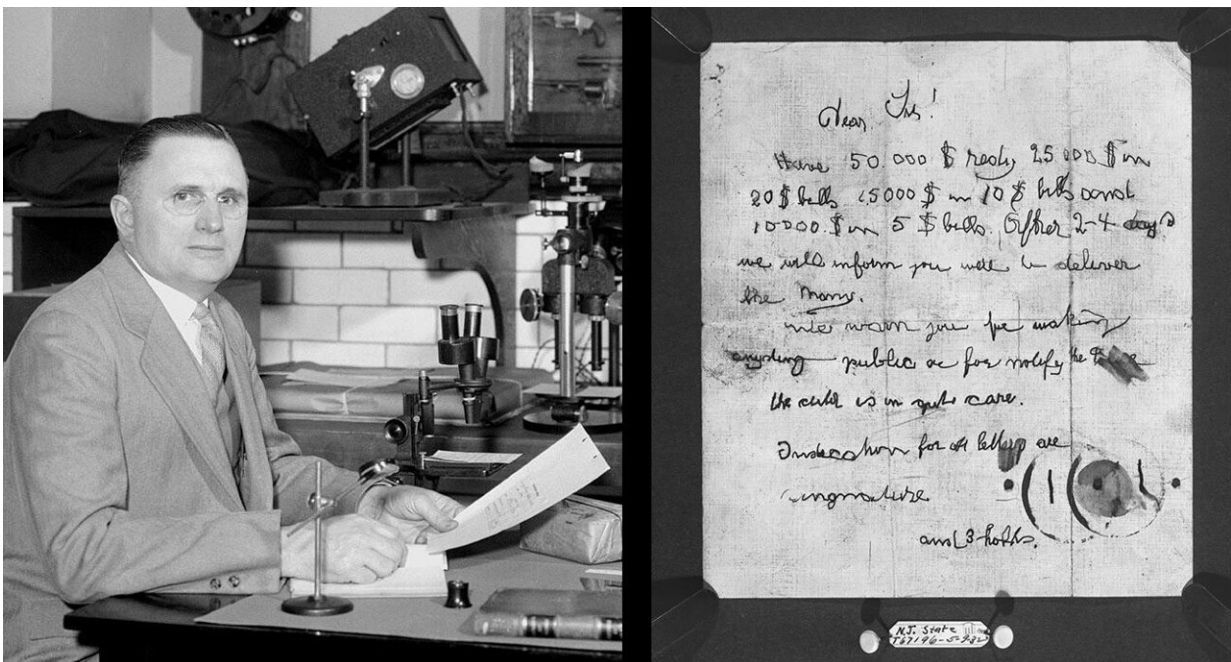 Dear Sir!
Have 50 000 $ redy 25 000 $ in
20 $ bills 15000 $ in 10 $ bills and
10000 $ in 5 $ bills. After 2-4 days
we will inform you were to deliver
the Mony.
We warn you for making
anyding public or for notify the
the child is in gute care.
Indication for all letters are
singnature
and 3 holds.
N.J. State